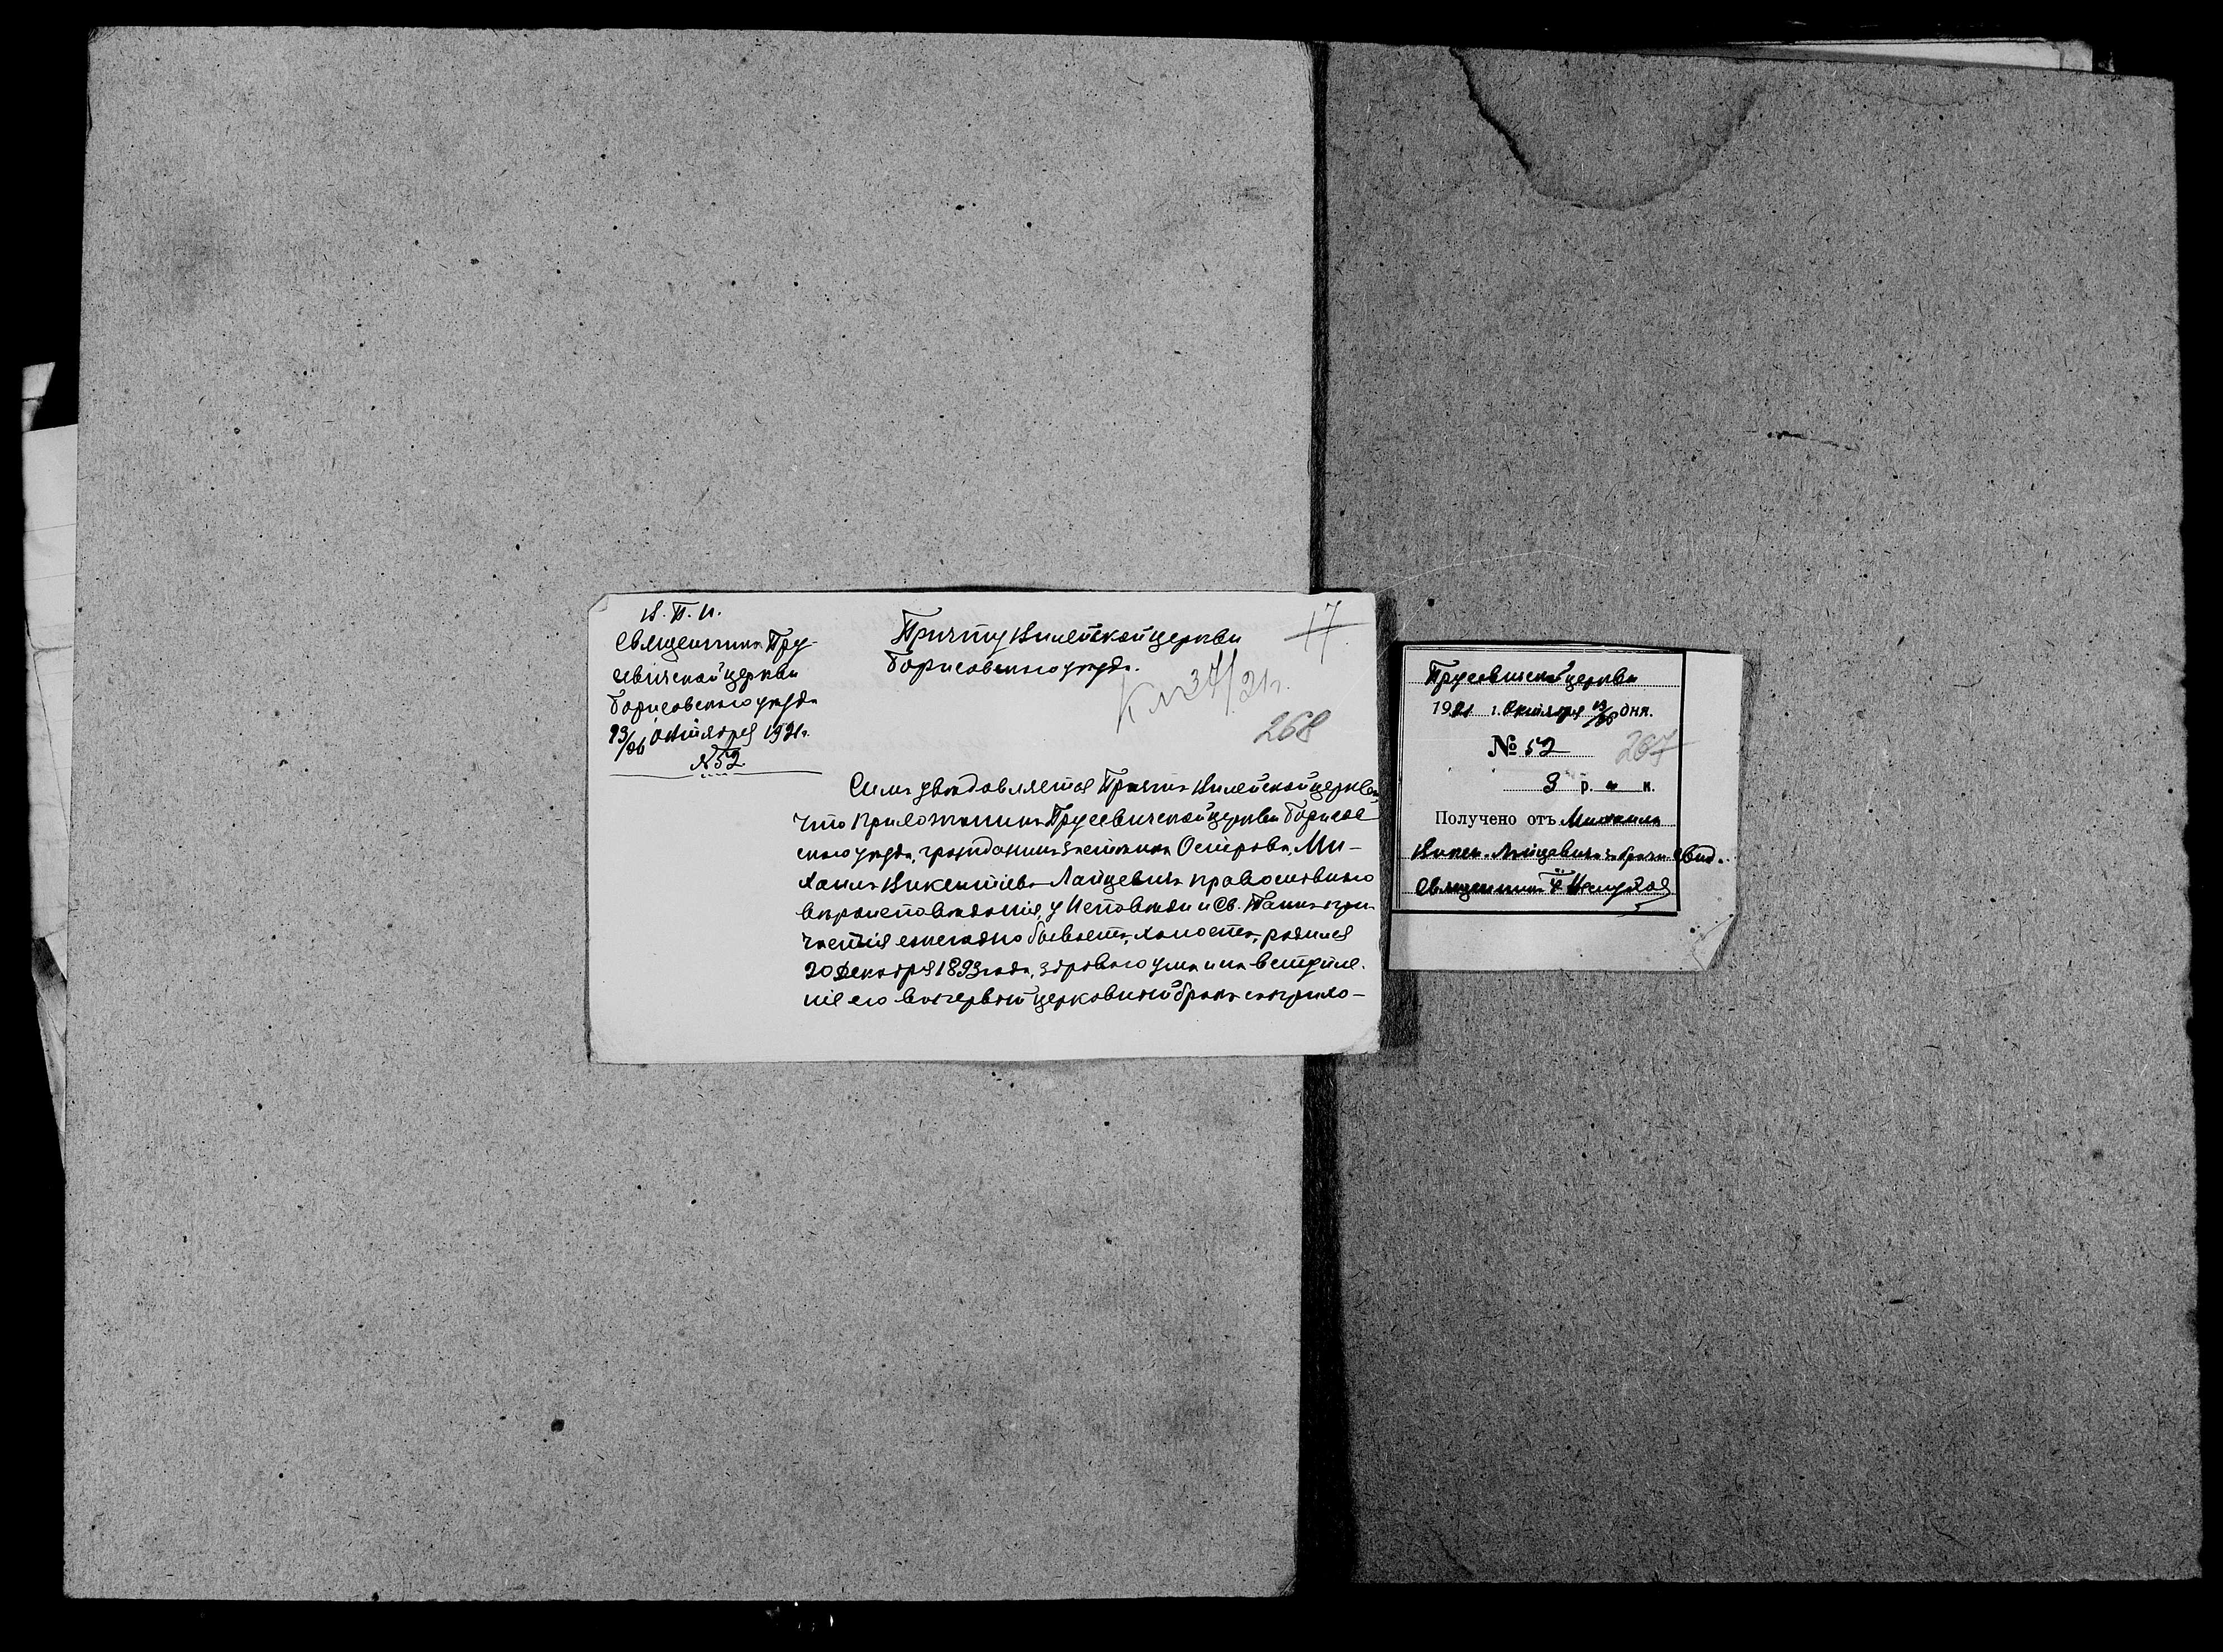 В. П. И.
Священника Пру-
севичской церкви
Борисовского уѣзда
13/26 Октября 1921 г.
№ 52
Причту Вилейской церкви
Борисовского уѣзда.
17
К № 37/21 г.
268
Симъ увѣдовляется Причтъ Вилейской церкви,
что прихожанинъ Прусевичской церкви Борисов-
ского уѣзда, гражданинъ Острова, Ми-
хаилъ Викентіевъ Лайцевичъ православного
вѣроисповѣданія, у Исповѣди и Св. Таинъ при-
частія ежегодно бываетъ, холостъ, родился
20 Декабря 1893 года, здравого ума и на вступле-
ніе его въ первый церковный бракъ съ прихо-
Прусевичской церкви
1921 г. Октября 13/26 дня.
№ 52
267
3 р. „ к.
Получено отъ Михаила
Викен. Лайцевича за брачн. свид.
Священникъ